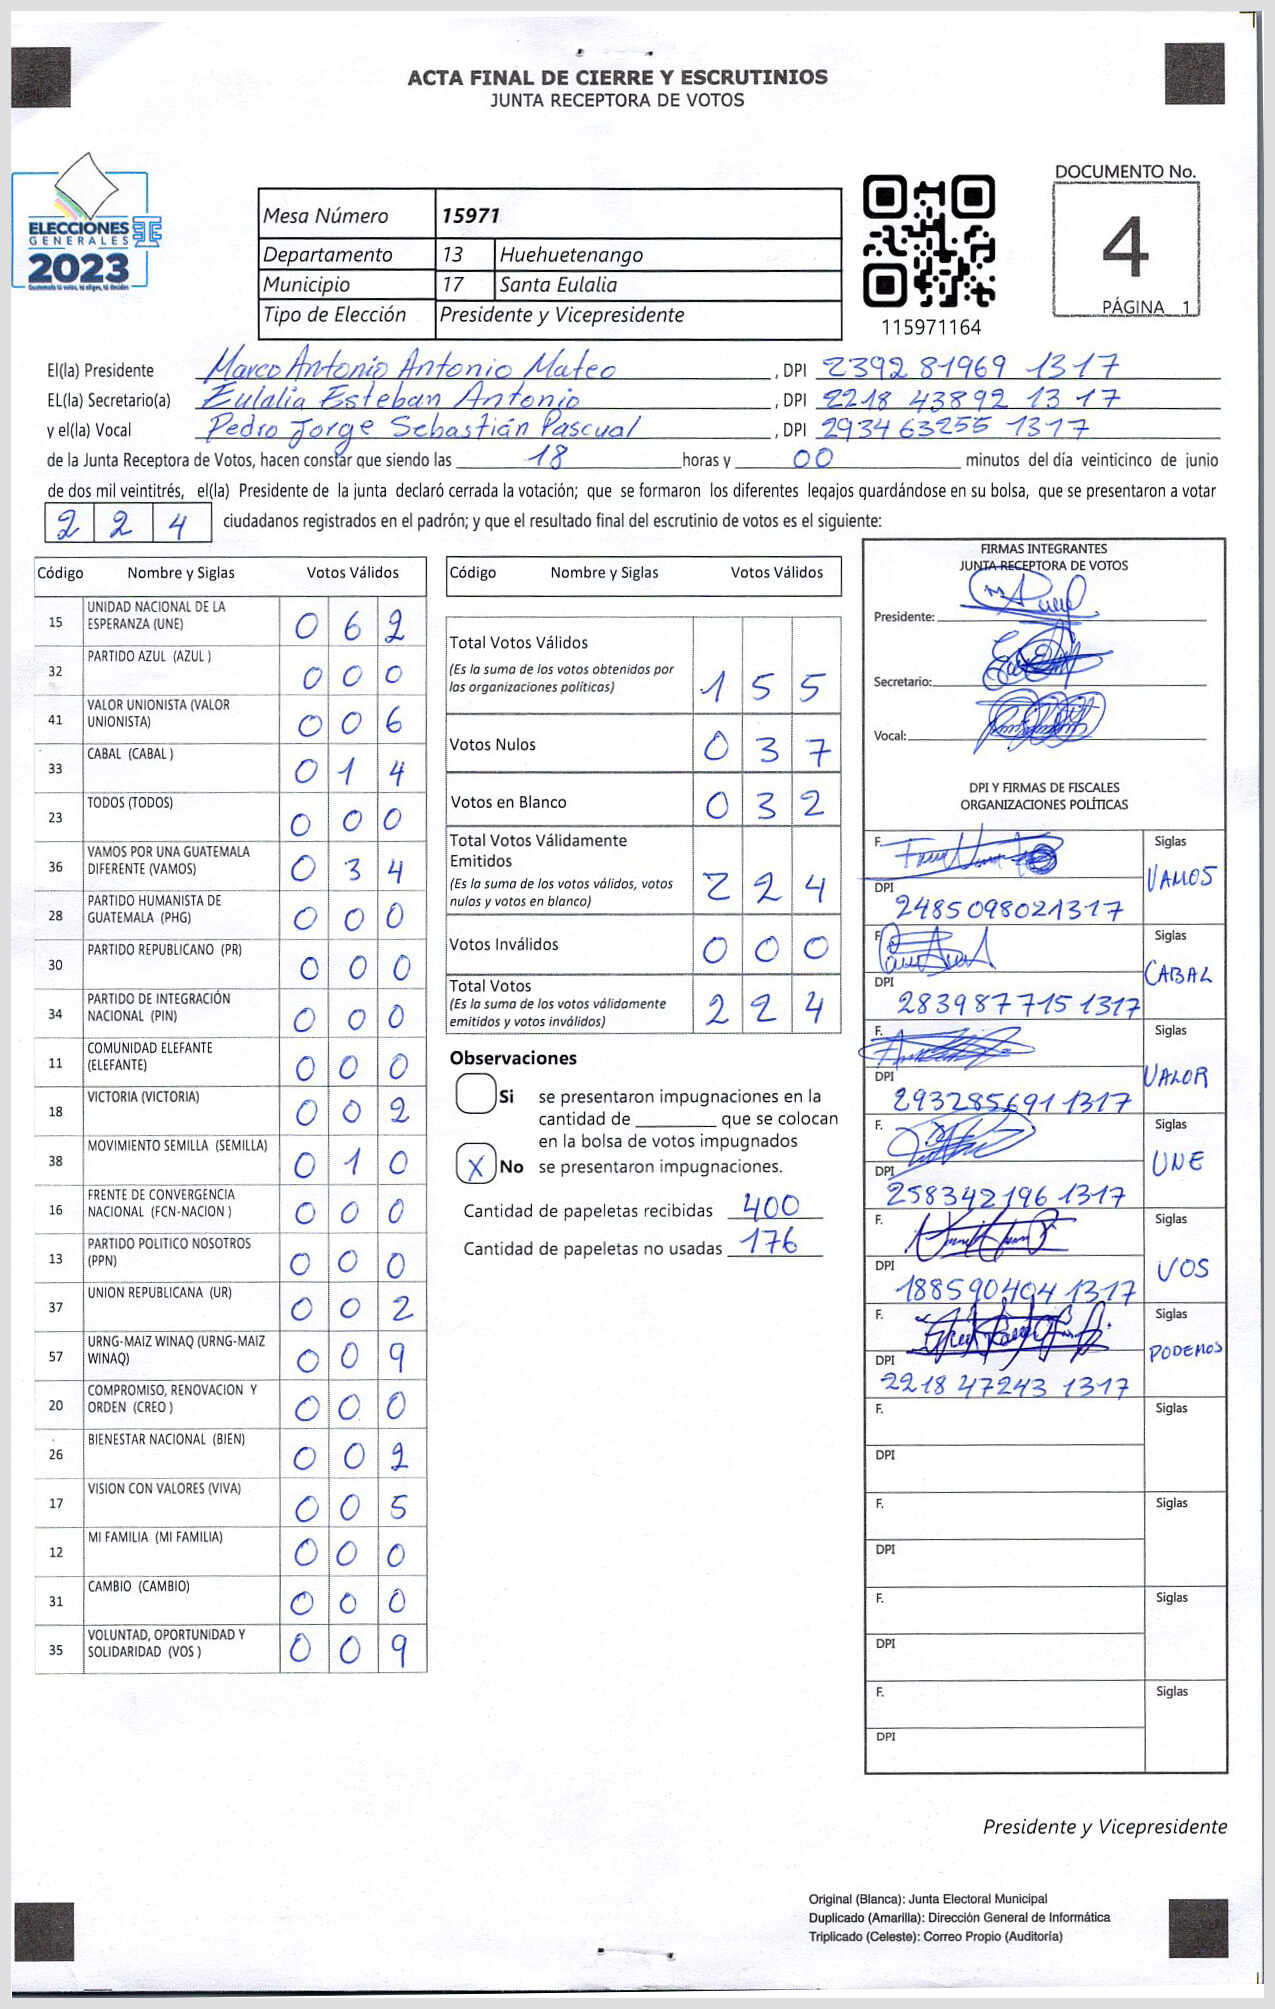 ACTA FINAL DE CIERRE Y ESCRUTINIOS
JUNTA RECEPTORA DE VOTOS
ELECCIONES
GENERALES
2023
Mesa Número 15971
Departamento 13 Huehuetenango
Municipio 17 Santa Eulalia
Tipo de Elección Presidente y Vicepresidente
115971164
DOCUMENTO No.
4
PÁGINA 1
El(la) Presidente Marco Antonio Antonio Mateo, DPI 2392 81969 1317
EL(la) Secretario(a) Eulalia Esteban Antonio, DPI 2218 43892 1317
y el(la) Vocal Pedro Jorge Sebastián Pascual, DPI 2934 63255 1317
de la Junta Receptora de Votos, hacen constar que siendo las 18 horas y 00 minutos del día veinticinco de junio
de dos mil veintitrés, el(la) Presidente de la junta declaró cerrada la votación; que se formaron los diferentes legajos guardándose en su bolsa, que se presentaron a votar
224 ciudadanos registrados en el padrón; y que el resultado final del escrutinio de votos es el siguiente:
Código Nombre y Siglas Votos Válidos
15 UNIDAD NACIONAL DE LA ESPERANZA (UNE) 062
32 PARTIDO AZUL (AZUL ) 000
41 VALOR UNIONISTA (VALOR UNIONISTA) 006
33 CABAL (CABAL ) 014
23 TODOS (TODOS) 000
36 VAMOS POR UNA GUATEMALA DIFERENTE (VAMOS) 034
28 PARTIDO HUMANISTA DE GUATEMALA (PHG) 000
30 PARTIDO REPUBLICANO (PR) 000
34 PARTIDO DE INTEGRACIÓN NACIONAL (PIN) 000
11 COMUNIDAD ELEFANTE (ELEFANTE) 000
18 VICTORIA (VICTORIA) 002
38 MOVIMIENTO SEMILLA (SEMILLA) 010
16 FRENTE DE CONVERGENCIA NACIONAL (FCN-NACION ) 000
13 PARTIDO POLITICO NOSOTROS (PPN) 000
37 UNION REPUBLICANA (UR) 002
57 URNG-MAIZ WINAQ (URNG-MAIZ WINAQ) 009
20 COMPROMISO, RENOVACION Y ORDEN (CREO ) 000
26 BIENESTAR NACIONAL (BIEN) 002
17 VISION CON VALORES (VIVA) 005
12 MI FAMILIA (MI FAMILIA) 000
31 CAMBIO (CAMBIO) 000
35 VOLUNTAD, OPORTUNIDAD Y SOLIDARIDAD (VOS ) 009
Código Nombre y Siglas Votos Válidos
Total Votos Válidos
(Es la suma de los votos obtenidos por las organizaciones políticas) 155
Votos Nulos 037
Votos en Blanco 032
Total Votos Válidamente Emitidos
(Es la suma de los votos válidos, votos nulos y votos en blanco) 224
Votos Inválidos 000
Total Votos
(Es la suma de los votos válidamente emitidos y votos inválidos) 224
Observaciones
Si se presentaron impugnaciones en la
cantidad de ________ que se colocan
en la bolsa de votos impugnados
X No se presentaron impugnaciones.
Cantidad de papeletas recibidas 400
Cantidad de papeletas no usadas 176
FIRMAS INTEGRANTES
JUNTA RECEPTORA DE VOTOS
Presidente:
Secretario:
Vocal:
DPI Y FIRMAS DE FISCALES
ORGANIZACIONES POLÍTICAS
F. Siglas VAMOS
DPI 2485098021317
F. Siglas CABAL
DPI 283987715 1317
F. Siglas VALOR
DPI 293285691 1317
F. Siglas UNE
DPI 258342196 1317
F. Siglas VOS
DPI 188590404 1317
F. Siglas PODEMOS
DPI 2218 47243 1317
F. Siglas
DPI
F. Siglas
DPI
F. Siglas
DPI
F. Siglas
DPI
Presidente y Vicepresidente
Original (Blanca): Junta Electoral Municipal
Duplicado (Amarilla): Dirección General de Informática
Triplicado (Celeste): Correo Propio (Auditoría)